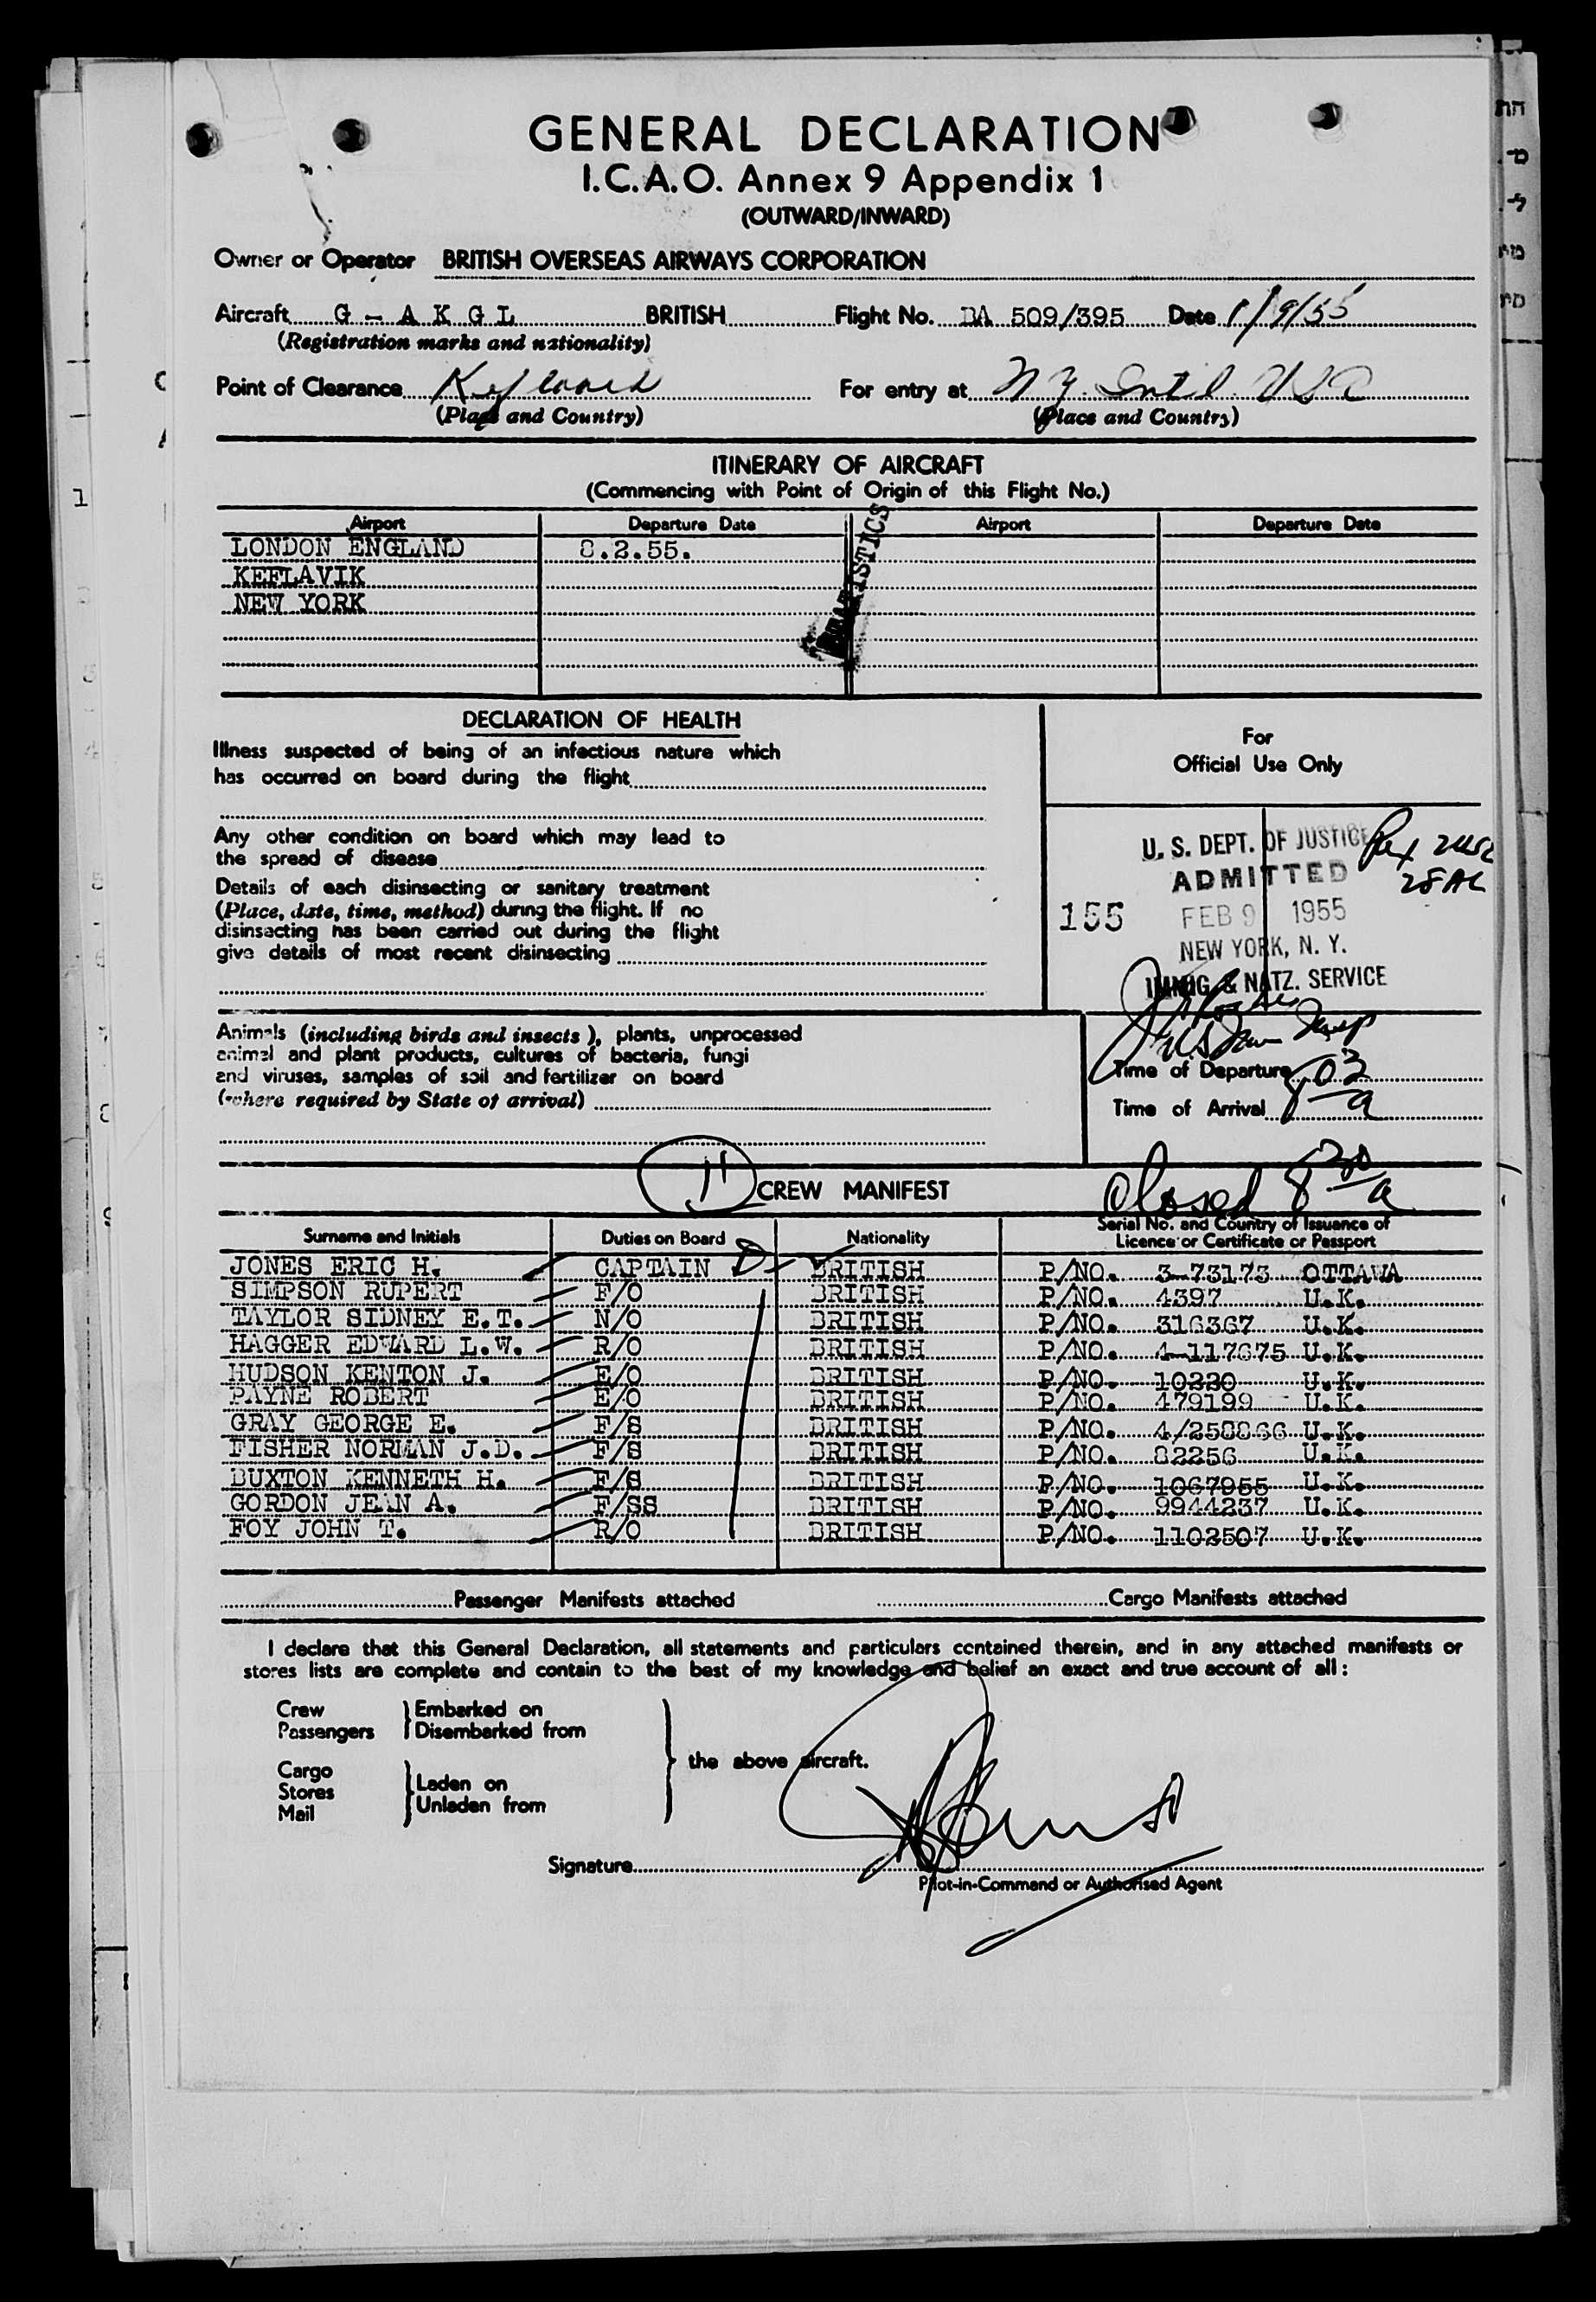 GENERAL DECLARATION
I.C.A.O. Annex 9 Appendix 1
(OUTWARD/INWARD)
Owner or Operator BRITISH OVERSEAS AIRWAYS CORPORATION
Aircraft G - A K G L BRITISH Flight No. BA 509/395 Date /9/55
(Registration marks and nationality)
Point of Clearance Keflavik For entry at N.Y. Intl. USA
(Place and Country) (Place and Country)
ITINERARY OF AIRCRAFT
(Commencing with Point of Origin of this Flight No.)
Airport Departure Date Airport Departure Date
LONDON ENGLAND 8.2.55.
KEFLAVIK
NEW YORK
STATISTICS
DECLARATION OF HEALTH
Illness suspected of being of an infectious nature which
has occurred on board during the flight
Any other condition on board which may lead to
the spread of disease
Details of each disinsecting or sanitary treatment
(Place, date, time, method) during the flight. If no
disinsecting has been carried out during the flight
give details of most recent disinsecting
For
Official Use Only
U. S. DEPT. OF JUSTICE
ADMITTED
155 FEB 9 1955
NEW YORK, N. Y.
IMMIG. & NATZ. SERVICE
Animals (including birds and insects), plants, unprocessed
animal and plant products, cultures of bacteria, fungi
and viruses, samples of soil and fertilizer on board
(where required by State of arrival)
Time of Departure
Time of Arrival 8 03 a
11 CREW MANIFEST closed 8 30 a
Surname and Initials Duties on Board Nationality Serial No. and Country of Issuance of
Licence or Certificate or Passport
JONES ERIC H. CAPTAIN BRITISH P/NO. 3-73173 OTTAWA
SIMPSON RUPERT F/O BRITISH P/NO. 4397 U.K.
TAYLOR SIDNEY E.T. N/O BRITISH P/NO. 316367 U.K.
HAGGER EDWARD L.W. R/O BRITISH P/NO. 4-117675 U.K.
HUDSON KENTON J. E/O BRITISH P/NO. 10220 U.K.
PAYNE ROBERT E/O BRITISH P/NO. 479199 U.K.
GRAY GEORGE E. F/S BRITISH P/NO. 4/258866 U.K.
FISHER NORMAN J.D. F/S BRITISH P/NO. 82256 U.K.
BUXTON KENNETH H. F/S BRITISH P/NO. 1067955 U.K.
GORDON JEAN A. F/SS BRITISH P/NO. 9944237 U.K.
FOY JOHN T. R/O BRITISH P/NO. 1102507 U.K.
Passenger Manifests attached Cargo Manifests attached
I declare that this General Declaration, all statements and particulars contained therein, and in any attached manifests or
stores lists are complete and contain to the best of my knowledge and belief an exact and true account of all:
Crew Embarked on
Passengers Disembarked from
the above aircraft.
Cargo
Stores Laden on
Mail Unladen from
Signature
Pilot-in-Command or Authorised Agent